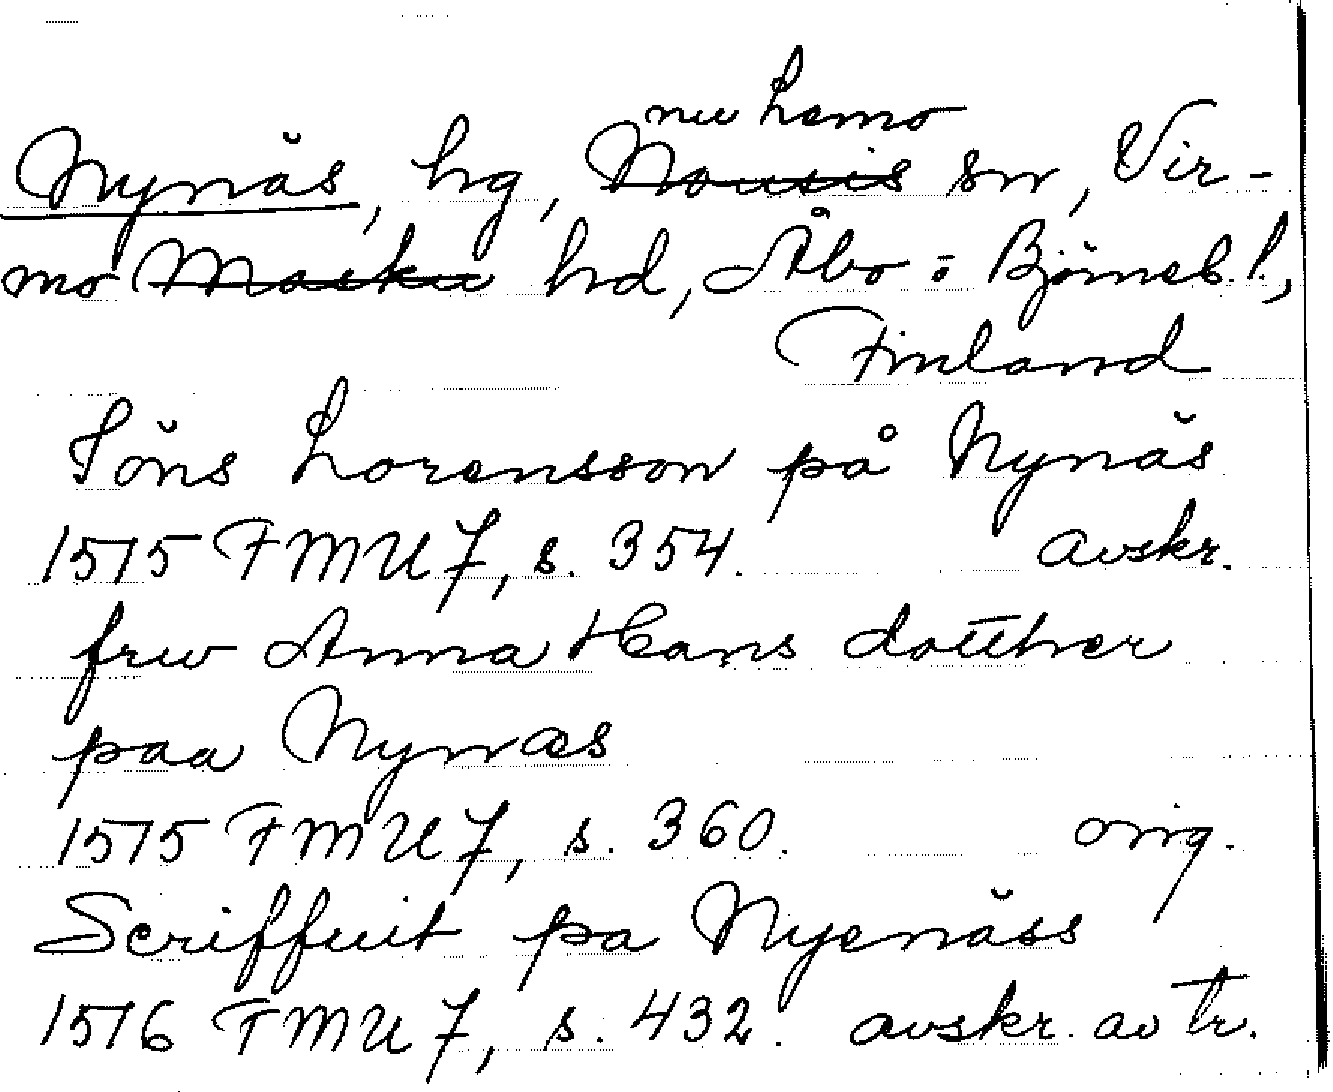 nu Lemo
Nynäs, hg, Nousis sn, Vir-
mo Masku hd, Åbo o Björneb. l.,
Finland
Jöns Lorensson på Nynäs
1515 FMU 7, s. 354. avskr.
frw Anna Hans dotther
paa Nynæs
1515 FMU 7, s. 360. orig.
Scriffuit pa Nyenäss
1516 FMU 7, s. 432. avskr. av tr.